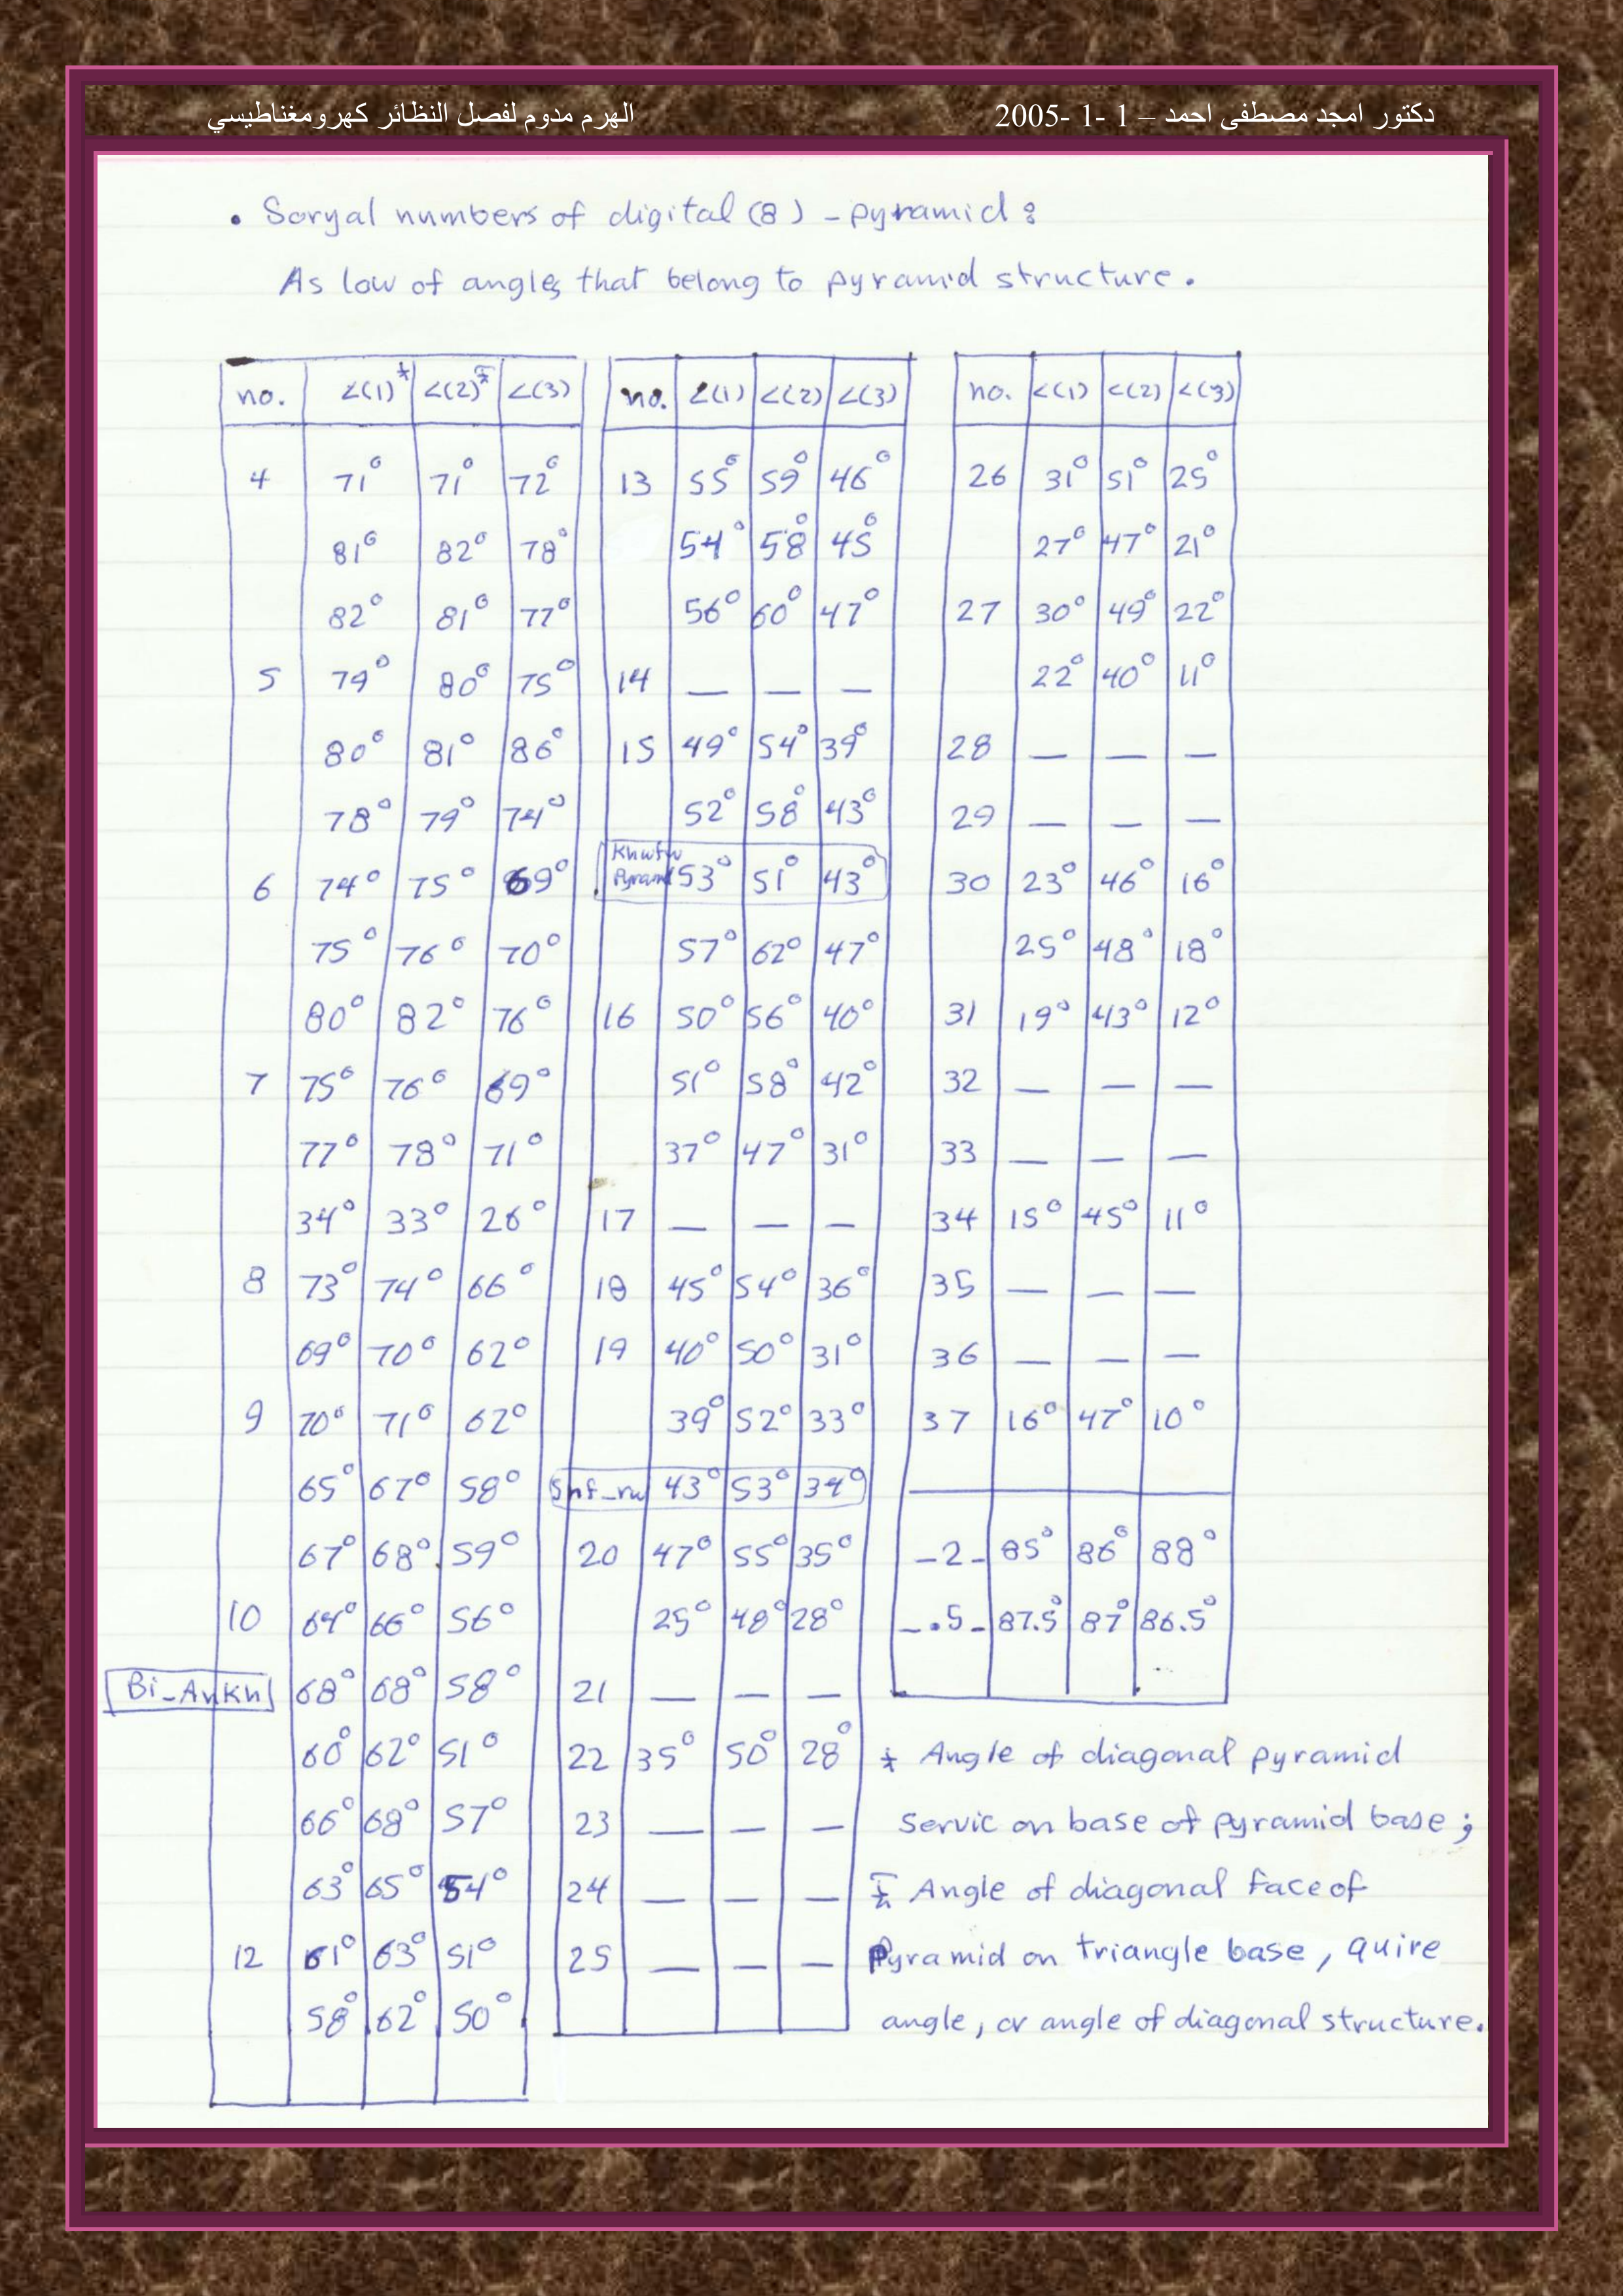 دكتور امجد مصطفى احمد – 1 -1 -2005 الهرم مدوم لفصل النظائر كهرومغناطيسي
• Soryal numbers of digital (8) - pyramid :
As low of angles that belong to pyramid structure.
no. ∠(1) ∠(2) ∠(3)
4 71° 71° 72°
81° 82° 78°
82° 81° 77°
5 79° 80° 75°
80° 81° 86°
78° 79° 74°
6 74° 75° 69°
75° 76° 70°
80° 82° 76°
7 75° 76° 69°
77° 78° 71°
34° 33° 26°
8 73° 74° 66°
69° 70° 62°
9 70° 71° 62°
65° 67° 58°
67° 68° 59°
10 64° 66° 56°
Bi-Ankh 68° 68° 58°
60° 62° 51°
66° 68° 57°
63° 65° 54°
12 61° 63° 51°
58° 62° 50°
no. ∠(1) ∠(2) ∠(3)
13 55° 59° 46°
54° 58° 45°
56° 60° 47°
14 — — —
15 49° 54° 39°
52° 58° 43°
Khwfw Pyramid 53° 51° 43°
57° 62° 47°
16 50° 56° 40°
51° 58° 42°
37° 47° 31°
17 — — —
18 45° 54° 36°
19 40° 50° 31°
39° 52° 33°
Snf-rw 43° 53° 34°
20 47° 55° 35°
25° 48° 28°
21 — — —
22 35° 50° 28°
23 — — —
24 — — —
25 — — —
no. ∠(1) ∠(2) ∠(3)
26 31° 51° 25°
27° 47° 21°
27 30° 49° 22°
22° 40° 11°
28 — — —
29 — — —
30 23° 46° 16°
25° 48° 18°
31 19° 43° 12°
32 — — —
33 — — —
34 15° 45° 11°
35 — — —
36 — — —
37 16° 47° 10°
-2- 85° 86° 88°
-.5- 87.5° 87° 86.5°
Angle of diagonal pyramid
Servic on base of pyramid base ;
Angle of diagonal face of
Pyramid on triangle base, quire
angle, or angle of diagonal structure.